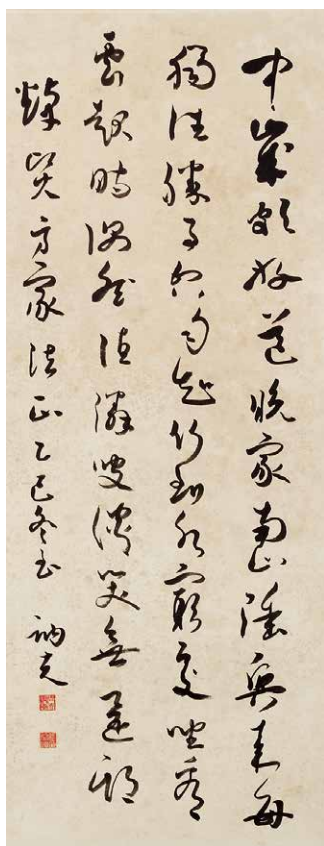 中歲頗好道晚家南山陲興來每
獨往勝事空自知行到水窮處坐看
雲起時偶然值鄰叟談笑無還期
方家法正乙巳冬書